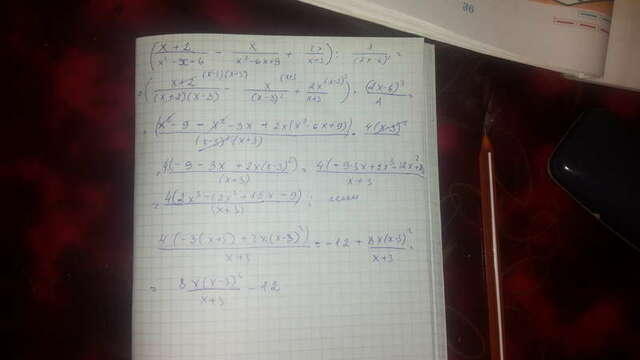 (x+2/x²-x-6 - x/x²-6x+9 + 2x/x+3) : 1/(2x-6)² =
= (x+2^(x-3)(x+3)/(x+2)(x-3) - x^(x+3)/(x-3)² + 2x^(x-3)²/x+3) · (2x-6)²/1 =
= (x²-9-x²-3x+2x(x²-6x+9))/(x-3)²(x+3) · 4(x-3)²
4(-9-3x+2x(x-3)²)/(x+3) = 4(-9-3x+2x³-12x²+18x)/x+3
= 4(2x³-12x²+15x-9)/(x+3) ; или
4(-3(x+3)+2x(x-3)²)/x+3 = -12 + 8x(x-3)²/x+3 =
= 8x(x-3)²/x+3 - 12